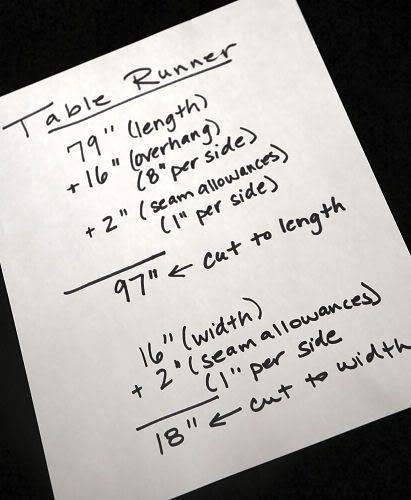 Table Runner
79" (length)
+ 16" (overhang)
(8" per side)
+ 2" (seam allowances)
(1" per side)
97" ← cut to length
16" (width)
+ 2" (seam allowances)
(1" per side
18" ← cut to width